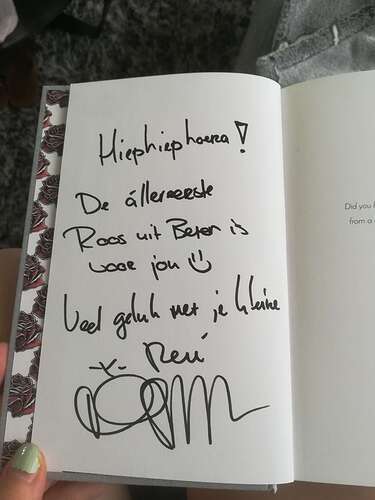 Hiephiephoera!
De állereerste
Roos uit Beton is
voor jou
Veel geluk met je kleine
x René
Did you
from a